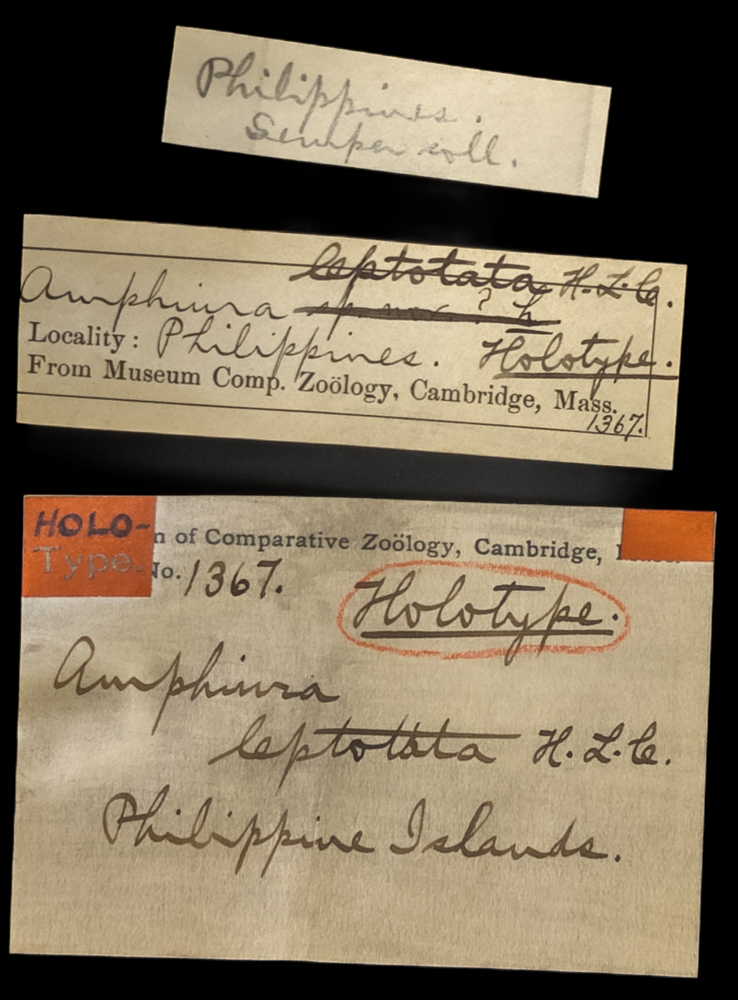 Philippines.
Semper coll.
leptotata H.L.C.
Amphiura sp. nov. ?
Locality: Philippines. Holotype.
From Museum Comp. Zoölogy, Cambridge, Mass.
1367.
HOLO-
Type.
n of Comparative Zoölogy, Cambridge,
No. 1367.
Holotype.
Amphiura
leptotata H.L.C.
Philippine Islands.